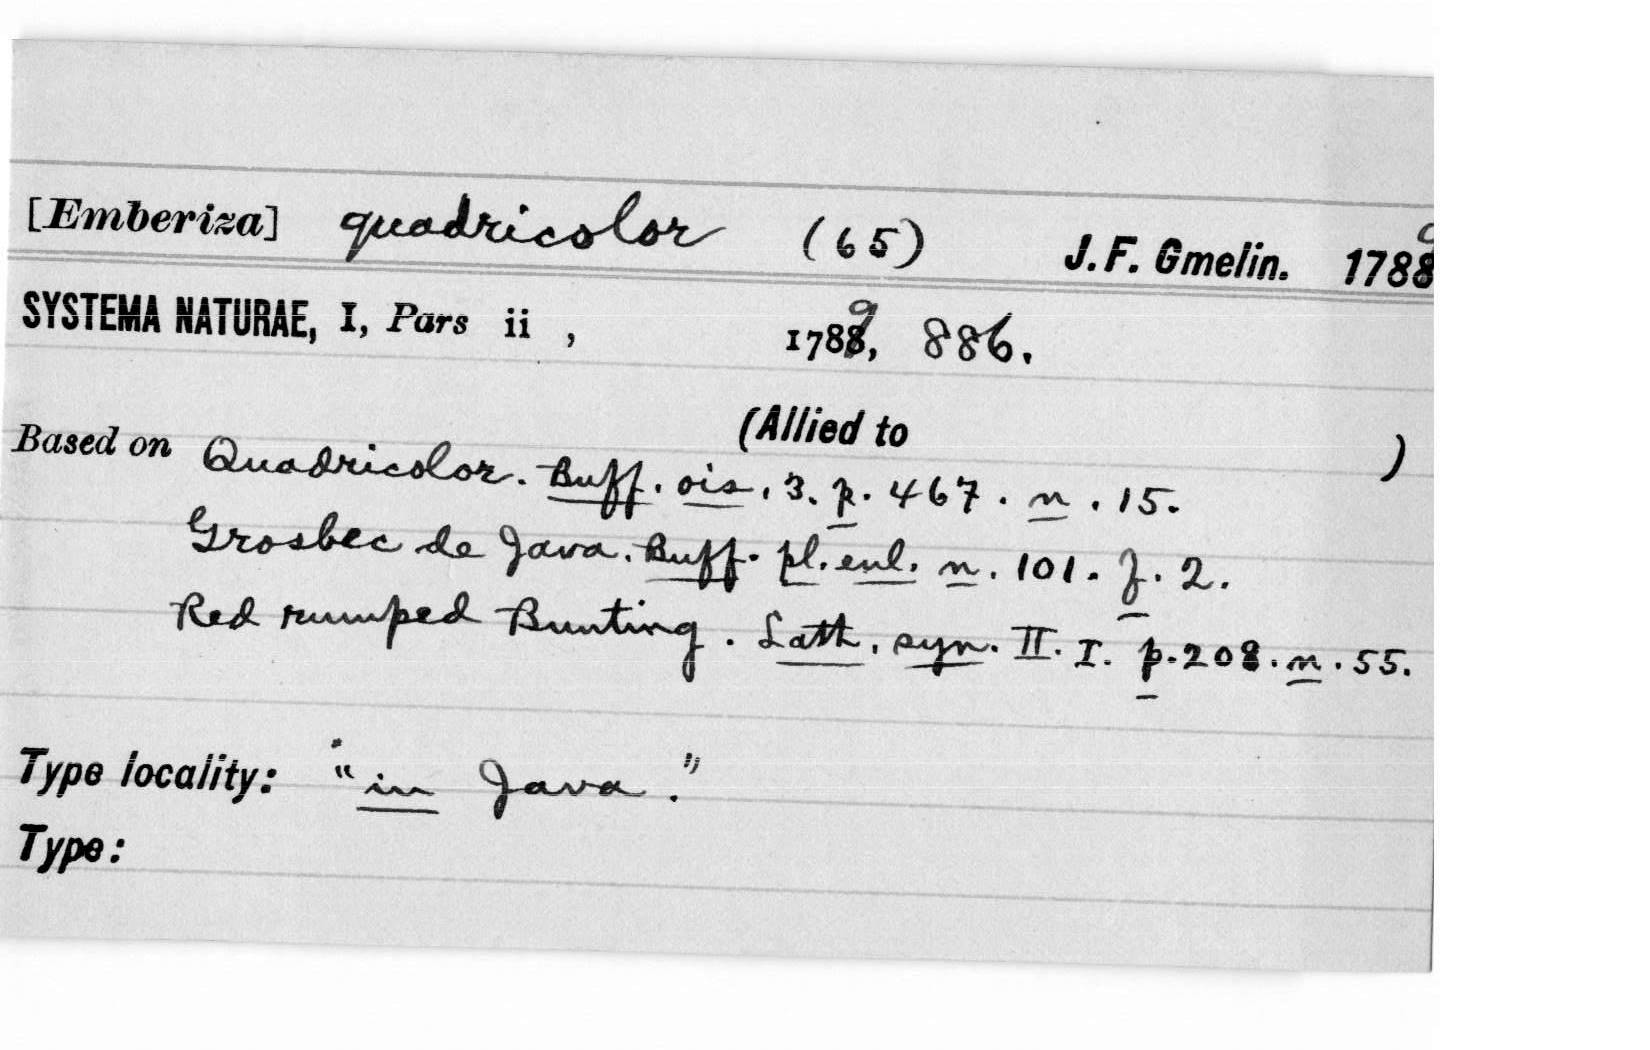 [Emberiza] quadricolor (65) J. F. Gmelin. 1789
SYSTEMA NATURAE, I, Pars ii , 1789, 886.
(Allied to )
Based on Quadricolor. Buff. ois. 3. p. 467. n. 15.
Grosbec de Java. Buff. pl. enl. n. 101. f. 2.
Red rumped Bunting. Lath. syn. II. I. p. 208. n. 55.
Type locality: "in Java."
Type: